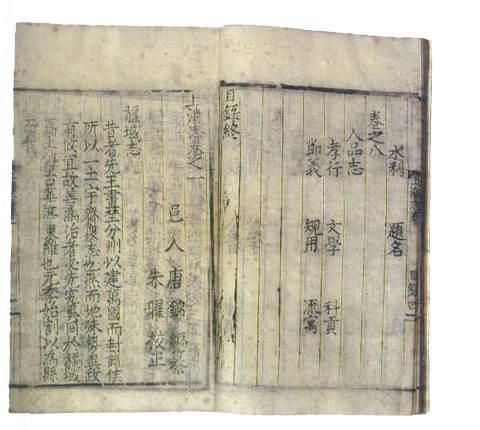 水利 題名
卷之八
人品志
孝行 文學 科貢
節義 規用 流寓
目錄終
上海志卷之一
邑人唐錦編纂
朱曜校正
疆域志
昔者先王畫埜分州以建萬國而封諸侯
所以一土宇齊 志也然而地殊勢異政
有攸宜故善為治者必先 於疆域
焉上海古華亭東維也元季始割以為縣